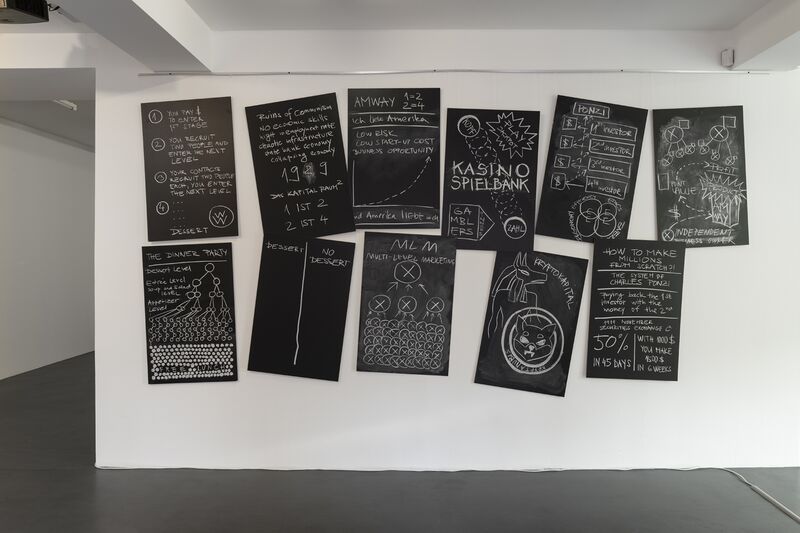 1 YOU PAY $
TO ENTER
1ST STAGE
2 YOU RECRUIT
TWO PEOPLE AND
ENTER THE NEXT
LEVEL
3 YOUR CONTACTS
RECRUIT TWO PEOPLE
EACH, YOU ENTER
THE NEXT LEVEL
4 ...
...
DESSERT
W
Ruins of Communism
NO economic skills
high unemployment rate
chaotic infrastructure
state bank economy
collapsing economy
19 9
DAS KAPITAL RAUM²
1 IST 2
2 IST 4
AMWAY 1=2
2=4
Ich liebe Amerika
LOW RISK
LOW START-UP COST
BUSINESS OPPORTUNITY
nd Amerika liebt mich
KASINO
SPIELBANK
GA
MBL
ERS
ZAHL
PONZI
$ 1st INVESTOR
$ 2nd INVESTOR
$ 3rd INVESTOR
$ 4th INVESTOR
PROFIT
POINT
VALUE
INDEPENDENT
BUSINESS OWNER
THE DINNER PARTY
Dessert Level
Entrée Level
Soup and Salad
LEVEL
Appetizer
Level
FREE LUNCH
DESSERT
NO
DESSERT
MLM
MULTI-LEVEL MARKETING
KRYPTOKAPITAL
HOW TO MAKE
MILLIONS
FROM SCRATCH?!
THE SYSTEM OF
CHARLES PONZI
Paying back the 1st
investor with the
money of the 2nd
1919 NOVEMBER
SECURITIES EXCHANGE C
50%
IN 45 DAYS
WITH 1000 $
YOU MAKE
1500 $
IN 6 WEEKS